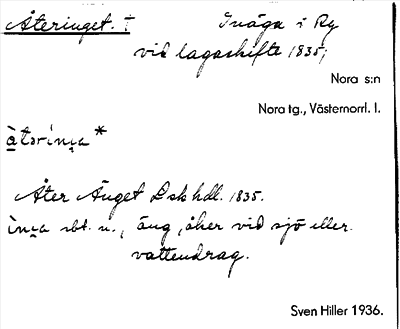 Återinget. † Inäga i Ry
vid lagaskifte 1835;
Nora s:n
Nora tg., Västernorrl. l.
Åter Änget Lsk hdl. 1835.
sbt. n., äng, åker vid sjö eller
vattendrag.
Sven Hiller 1936.